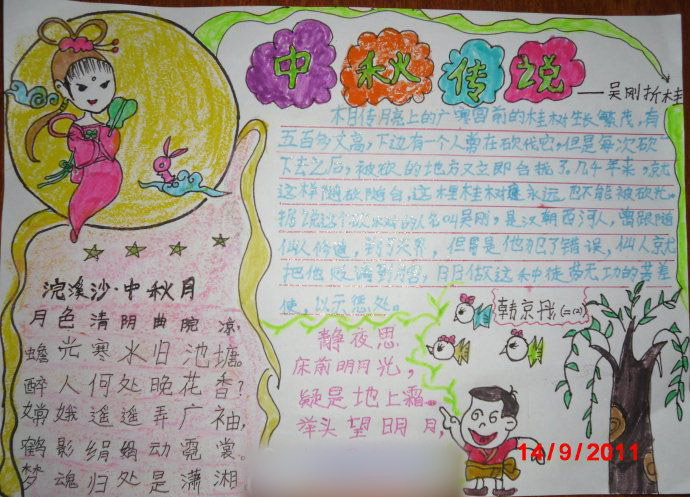 中秋传说
——吴刚折桂
相传月亮上的广寒宫前的桂树生长繁茂，有
五百多丈高，下边有一个人常在砍伐它，但是每次砍
下去之后，被砍的地方又立即合拢了。几千年来，就
这样随砍随合，这棵桂树永远也不能被砍光。
据说这个砍树的人名叫吴刚，是汉朝西河人，曾跟随
仙人修道，到了天界，但是他犯了错误，仙人就
把他贬谪到月宫，日日做这种徒劳无功的苦差
使，以示惩处。
韩京丹(二(2)
浣溪沙·中秋月
月色清阴曲院凉，
蟾光寒水旧池塘。
醉人何处晚花香？
嫦娥遥遥弄广袖，
鹤影绢娟动霓裳。
梦魂归处是潇湘
静夜思
床前明月光，
疑是地上霜。
举头望明月，
14/9/2011